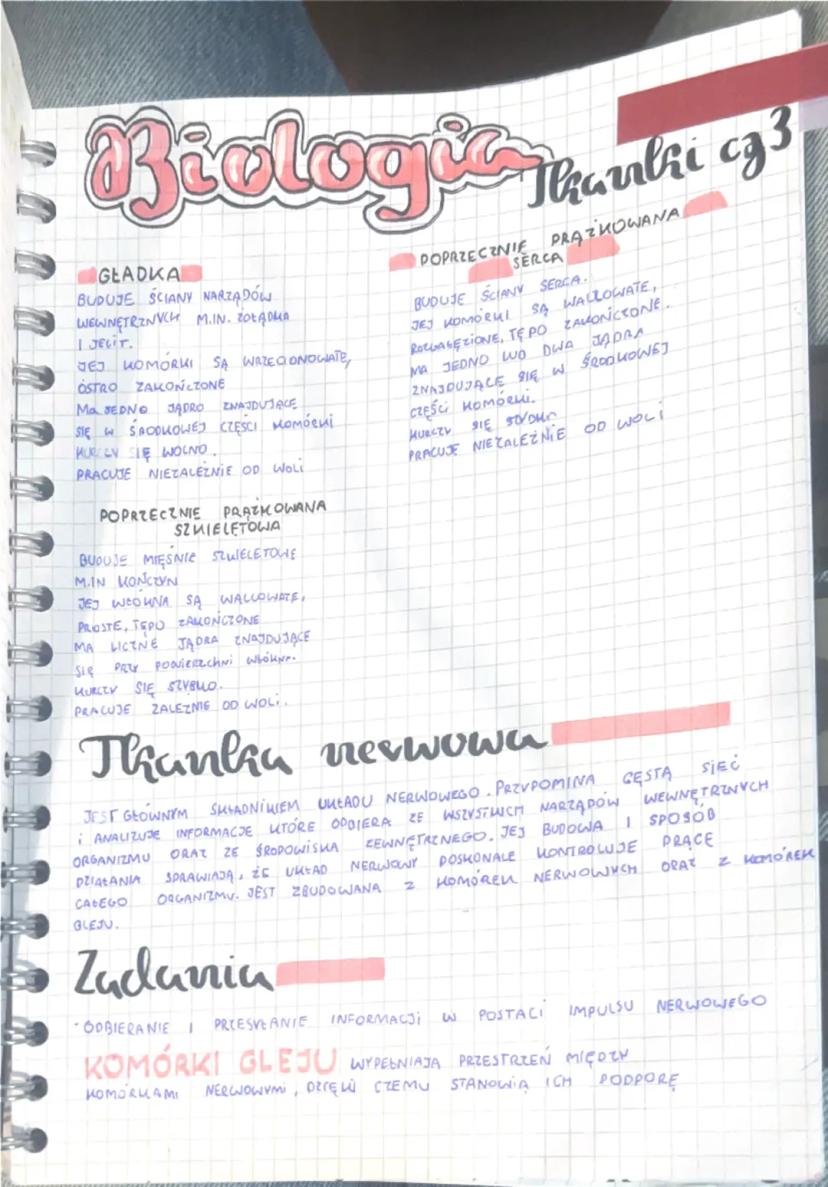 Biologia
Tkanki cz 3
GŁADKA
BUDUJE ŚCIANY NARZĄDÓW
WEWNĘTRZNYCH M.IN. ŻOŁĄDKA
I JELIT.
JEJ KOMÓRKI SĄ WRZECIONOWATE,
OSTRO ZAKOŃCZONE
MA JEDNO JĄDRO ZNAJDUJĄCE
SIĘ W ŚRODKOWEJ CZĘŚCI KOMÓRKI
KURCZY SIĘ WOLNO.
PRACUJE NIEZALEŻNIE OD WOLI
POPRZECZNIE PRĄŻKOWANA
SERCA
BUDUJE ŚCIANY SERCA.
JEJ KOMÓRKI SĄ WALCOWATE,
ROZGAŁĘZIONE, TĘPO ZAKOŃCZONE.
MA JEDNO LUB DWA JĄDRA
ZNAJDUJĄCE SIĘ W ŚRODKOWEJ
CZĘŚCI KOMÓRKI.
KURCZY SIĘ SZYBKO
PRACUJE NIEZALEŻNIE OD WOLI
POPRZECZNIE PRĄŻKOWANA
SZKIELETOWA
BUDUJE MIĘŚNIE SZKIELETOWE
M.IN KOŃCZYN
JEJ WŁÓKNA SĄ WALCOWATE,
PROSTE, TĘPO ZAKOŃCZONE
MA LICZNE JĄDRA ZNAJDUJĄCE
SIĘ PRZY POWIERZCHNI WŁÓKNA.
KURCZY SIĘ SZYBKO.
PRACUJE ZALEŻNIE OD WOLI.
Tkanka nerwowa
JEST GŁÓWNYM SKŁADNIKIEM UKŁADU NERWOWEGO. PRZYPOMINA GĘSTĄ SIEĆ
I ANALIZUJE INFORMACJE KTÓRE ODBIERA ZE WSZYSTKICH NARZĄDÓW WEWNĘTRZNYCH
ORGANIZMU ORAZ ZE ŚRODOWISKA ZEWNĘTRZNEGO. JEJ BUDOWA I SPOSÓB
DZIAŁANIA SPRAWIAJĄ, ŻE UKŁAD NERWOWY DOSKONALE KONTROLUJE PRACĘ
CAŁEGO ORGANIZMU. JEST ZBUDOWANA Z KOMÓREK NERWOWYCH ORAZ Z KOMÓREK
GLEJU.
Zadania
· ODBIERANIE I PRZESYŁANIE INFORMACJI W POSTACI IMPULSU NERWOWEGO
KOMÓRKI GLEJU WYPEŁNIAJĄ PRZESTRZEŃ MIĘDZY
KOMÓRKAMI NERWOWYMI, DZIĘKI CZEMU STANOWIĄ ICH PODPORĘ